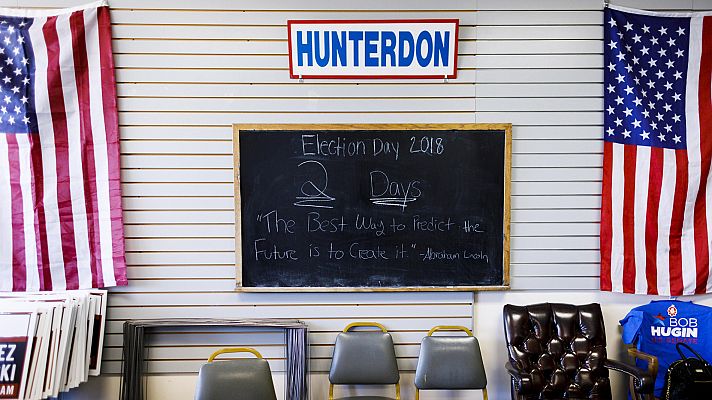 HUNTERDON
Election Day 2018
2 Days
"The Best Way to Predict the
Future is to Create it." -Abraham Lincoln
BOB
HUGIN